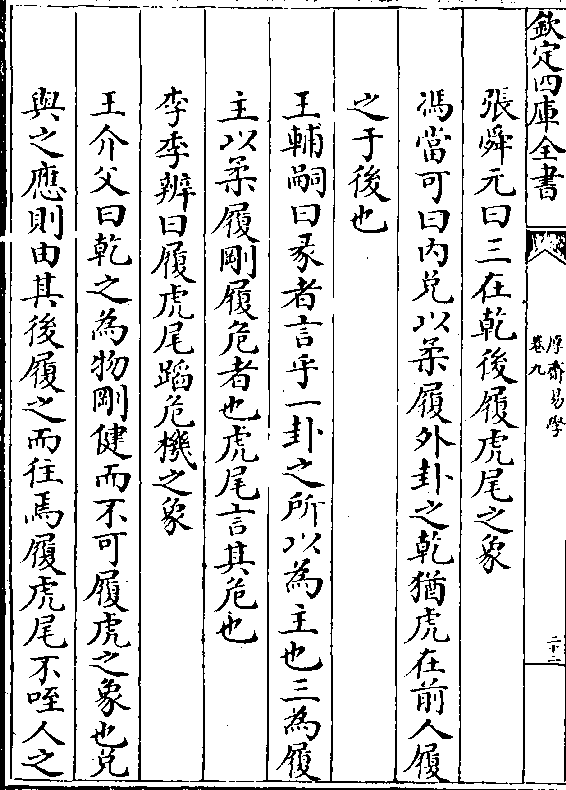 欽定四庫全書
厚齋易學
卷九
二十二
張舜元曰三在乾後履虎尾之象
馮當可曰内兌以柔履外卦之乾猶虎在前人履
之于後也
王輔嗣曰彖者言乎一卦之所以為主也三為履
主以柔履剛履危者也虎尾言其危也
李季辨曰履虎尾蹈危機之象
王介父曰乾之為物剛健而不可履虎之象也兌
與之應則由其後履之而往焉履虎尾不咥人之